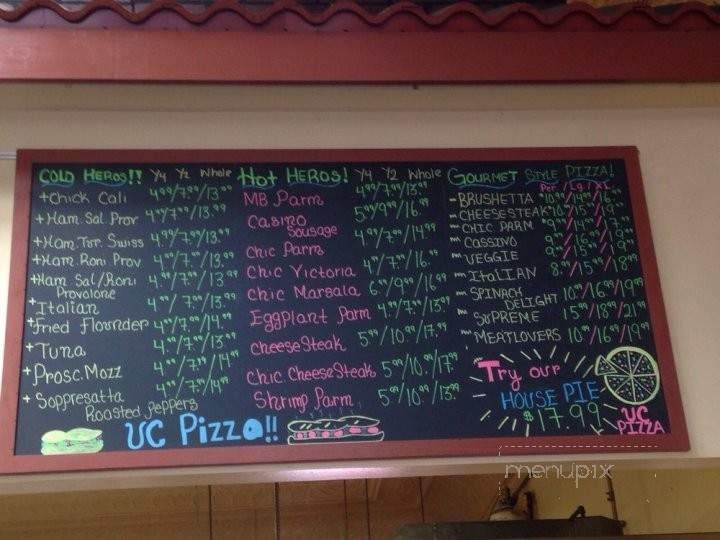 COLD HEROS!! 1/4 1/2 Whole
+ Chick Cali 4.99/7.99/13.99
+ Ham. Sal. Prov 4.99/7.99/13.99
+ Ham. Tur. Swiss 4.99/7.99/13.99
+ Ham. Roni Prov 4.99/7.99/13.99
+ Ham Sal/Roni 4.99/7.99/13.99
Provolone
+ Italian 4.99/7.99/13.99
+ Fried Flounder 4.99/7.99/14.99
+ Tuna 4.99/7.99/13.99
+ Prosc. Mozz 4.99/7.99/14.99
+ Soppresatta 4.99/7.99/14.99
Roasted Peppers
Hot HEROS! 1/4 1/2 Whole
MB Parm 4.99/7.99/13.99
Casino 5.99/9.99/16.99
Sausage
Chic Parm 4.99/7.99/14.99
Chic Victoria 4.99/7.99/16.99
Chic Marsala 6.99/9.99/16.99
Eggplant Parm 4.99/7.99/13.99
CheeseSteak 5.99/10.99/17.99
Chic. CheeseSteak 5.99/10.99/17.99
Shrimp Parm 5.99/10.99/13.99
GOURMET STYLE PIZZA!
Per / Lg / XL
BRUSHETTA
CHEESESTEAK
CHIC PARM
CASSINO
VEGGIE
ITALIAN 8.99/15.99/18.99
SPINACH
DELIGHT 10.99/16.99/19.99
SUPREME 15.99/18.99/21.99
MEATLOVERS 10.99/16.99/19.99
Try our
HOUSE PIE
$17.99
UC
PIZZA
UC Pizza!!
menupix